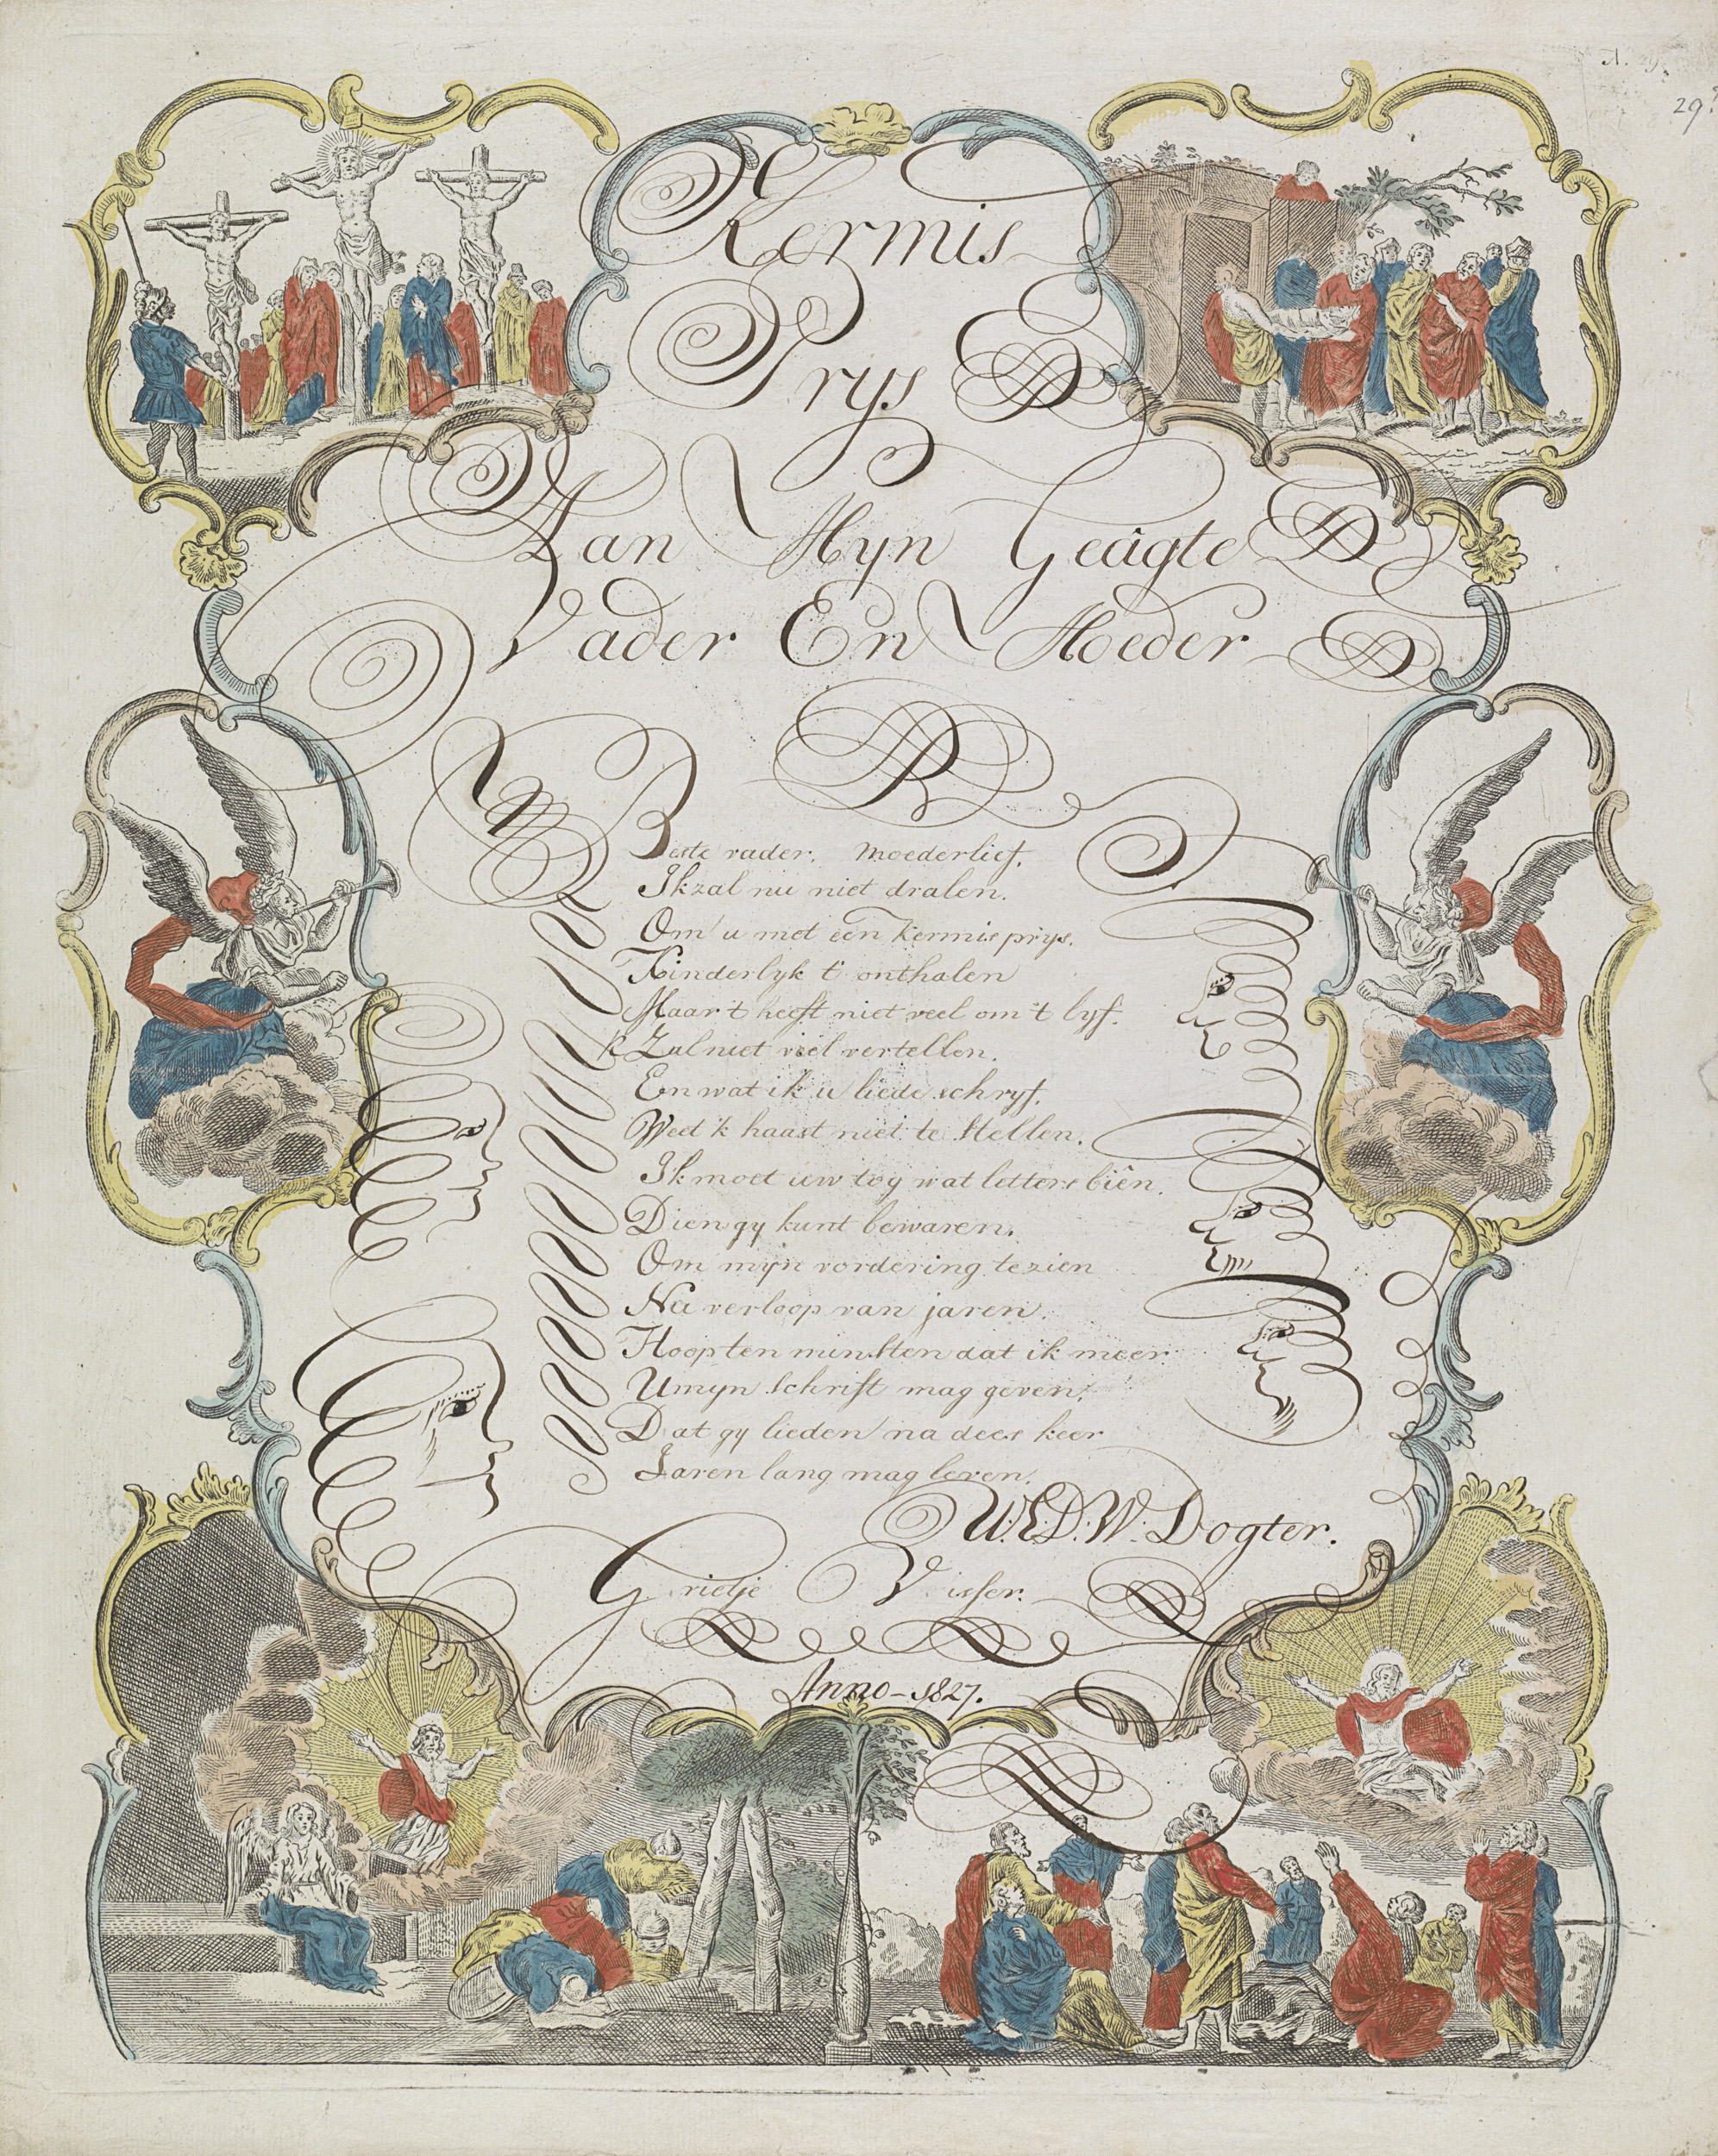 29
Kermis
Prys
Aan Myn Geägte
Vader En Moeder
Beste vader. Moederlief,
Ik zal nu niet dralen.
Om u met een kermis prys.
Kinderlyk t' onthalen
Maar 't heeft niet veel om 't lyf.
k Zal niet viel vertellen.
En wat ik u liede schryf.
Weet 'k haast niet te stellen.
Ik moet uw tog wat letters biên.
Dien gy kunt bewaren.
Om mijn vordering te zien
Na verloop van jaren.
Hoop ten minsten dat ik meer
U myn schrift mag geven.
Dat gy lieden na dees keer
Jaren lang mag leven.
U.E.D.W. Dogter.
Grietje Visser.
Anno - 1827.